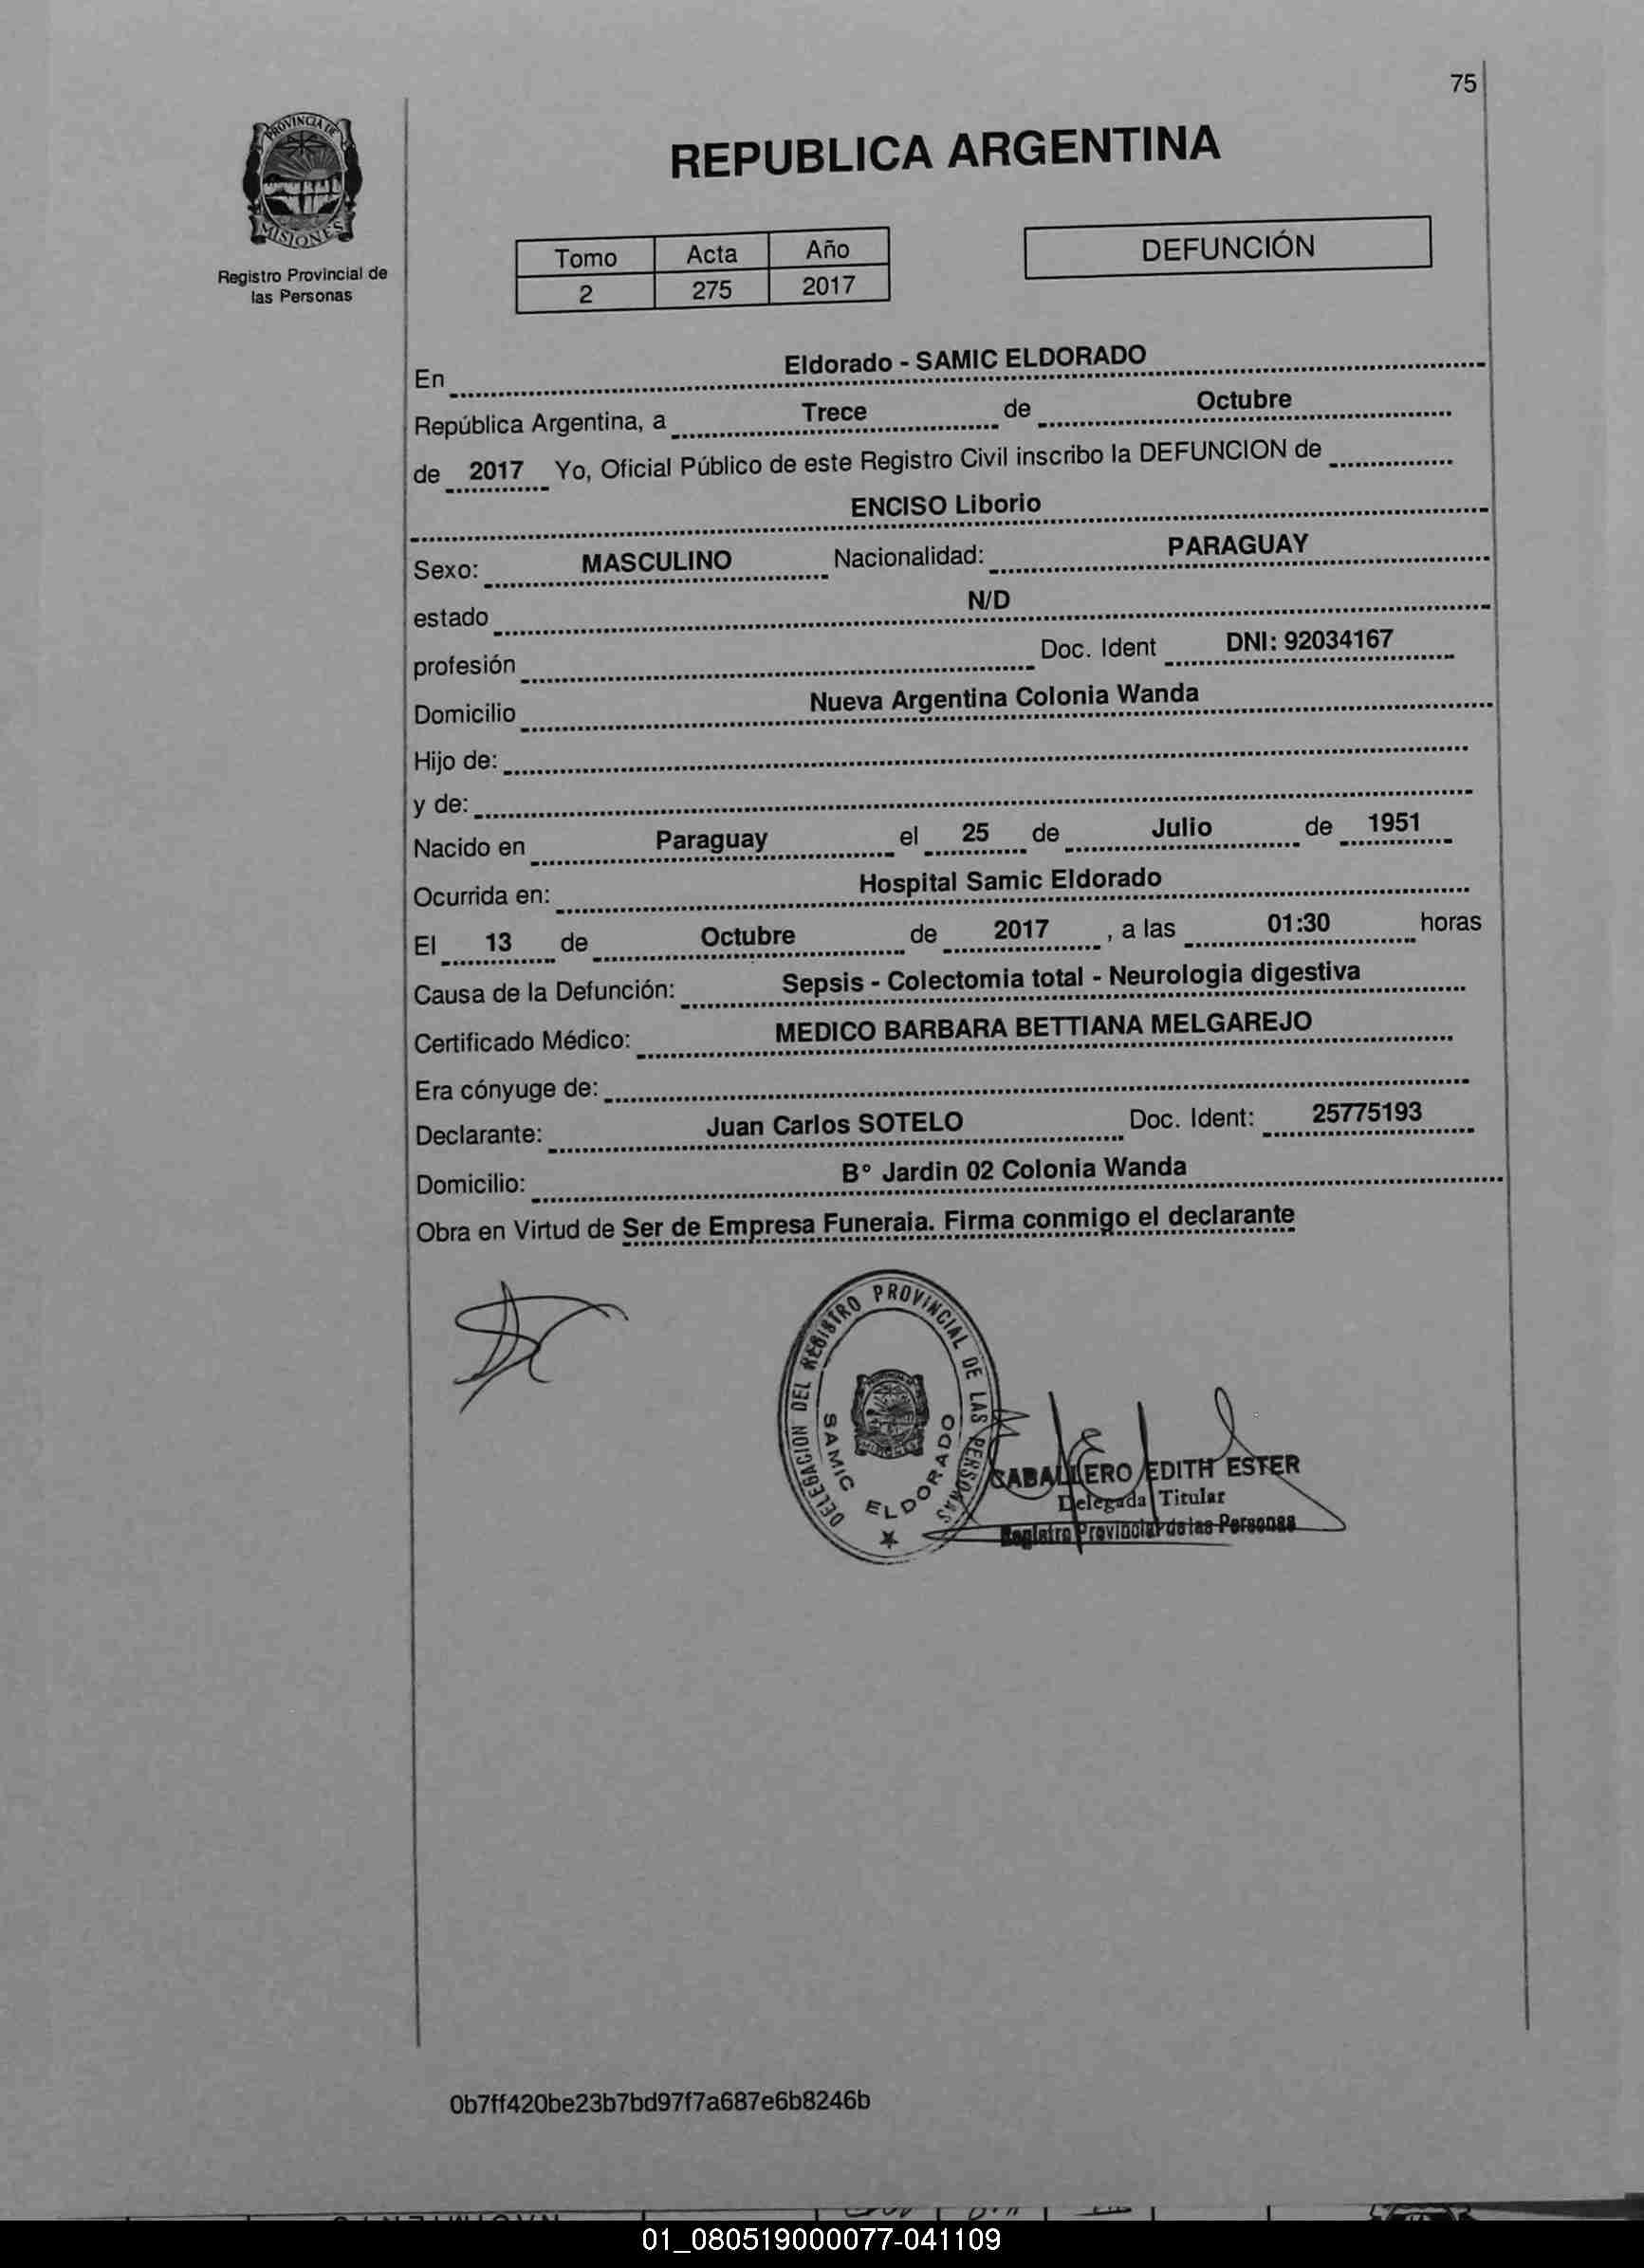 75
PROVINCIA DE
MISIONES
Registro Provincial de
las Personas
REPUBLICA ARGENTINA
Tomo Acta Año
2 275 2017
DEFUNCIÓN
En Eldorado - SAMIC ELDORADO
República Argentina, a Trece de Octubre
de 2017 Yo, Oficial Público de este Registro Civil inscribo la DEFUNCION de
ENCISO Liborio
Sexo: MASCULINO Nacionalidad: PARAGUAY
estado N/D
profesión Doc. Ident DNI: 92034167
Domicilio Nueva Argentina Colonia Wanda
Hijo de:
y de:
Nacido en Paraguay el 25 de Julio de 1951
Ocurrida en: Hospital Samic Eldorado
El 13 de Octubre de 2017 , a las 01:30 horas
Causa de la Defunción: Sepsis - Colectomia total - Neurologia digestiva
Certificado Médico: MEDICO BARBARA BETTIANA MELGAREJO
Era cónyuge de:
Declarante: Juan Carlos SOTELO Doc. Ident: 25775193
Domicilio: B° Jardin 02 Colonia Wanda
Obra en Virtud de Ser de Empresa Funeraia. Firma conmigo el declarante
DELEGACION DEL REGISTRO PROVINCIAL DE LAS PERSONAS
SAMIC ELDORADO
CABALLERO EDITH ESTER
Delegada Titular
Registro Provincial de las Personas
0b7ff420be23b7bd97f7a687e6b8246b
01_080519000077-041109